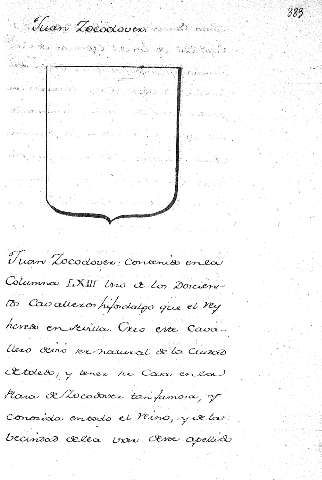 383
Juan Zocodover.
Juan Zocodover: Contenido en la
Columna LXIII Uno de los Docien-
tos Cavalleros hijosdalgo que el Rey
heredó en Sevilla. Creo este Cava-
llero seria natural de la Ciudad
de toledo, y tener su Casa en la
Plaza de Zocodover tan famosa, y
conocida entodo el Reino, y de la
vecindad della usar deste apellido